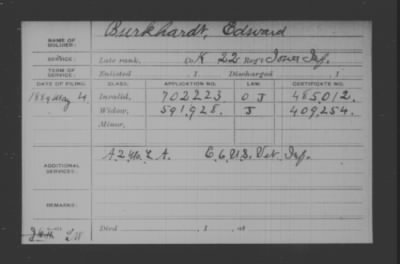 NAME OF SOLDIER: Burkhardt, Edward
SERVICE: Late rank, Co. K 22 Reg't Iowa Inf.
TERM OF SERVICE: Enlisted , 1 Discharged , 1
DATE OF FILING. CLASS. APPLICATION NO. LAW. CERTIFICATE NO.
1889 May 4 Invalid, 702223 O J 485,012.
Widow, 591,928. J 409,254.
Minor,
ADDITIONAL SERVICES: A 2 Mo. L. A. C, 6, U.S. Vet. Inf.
REMARKS:
Died , 1 , at